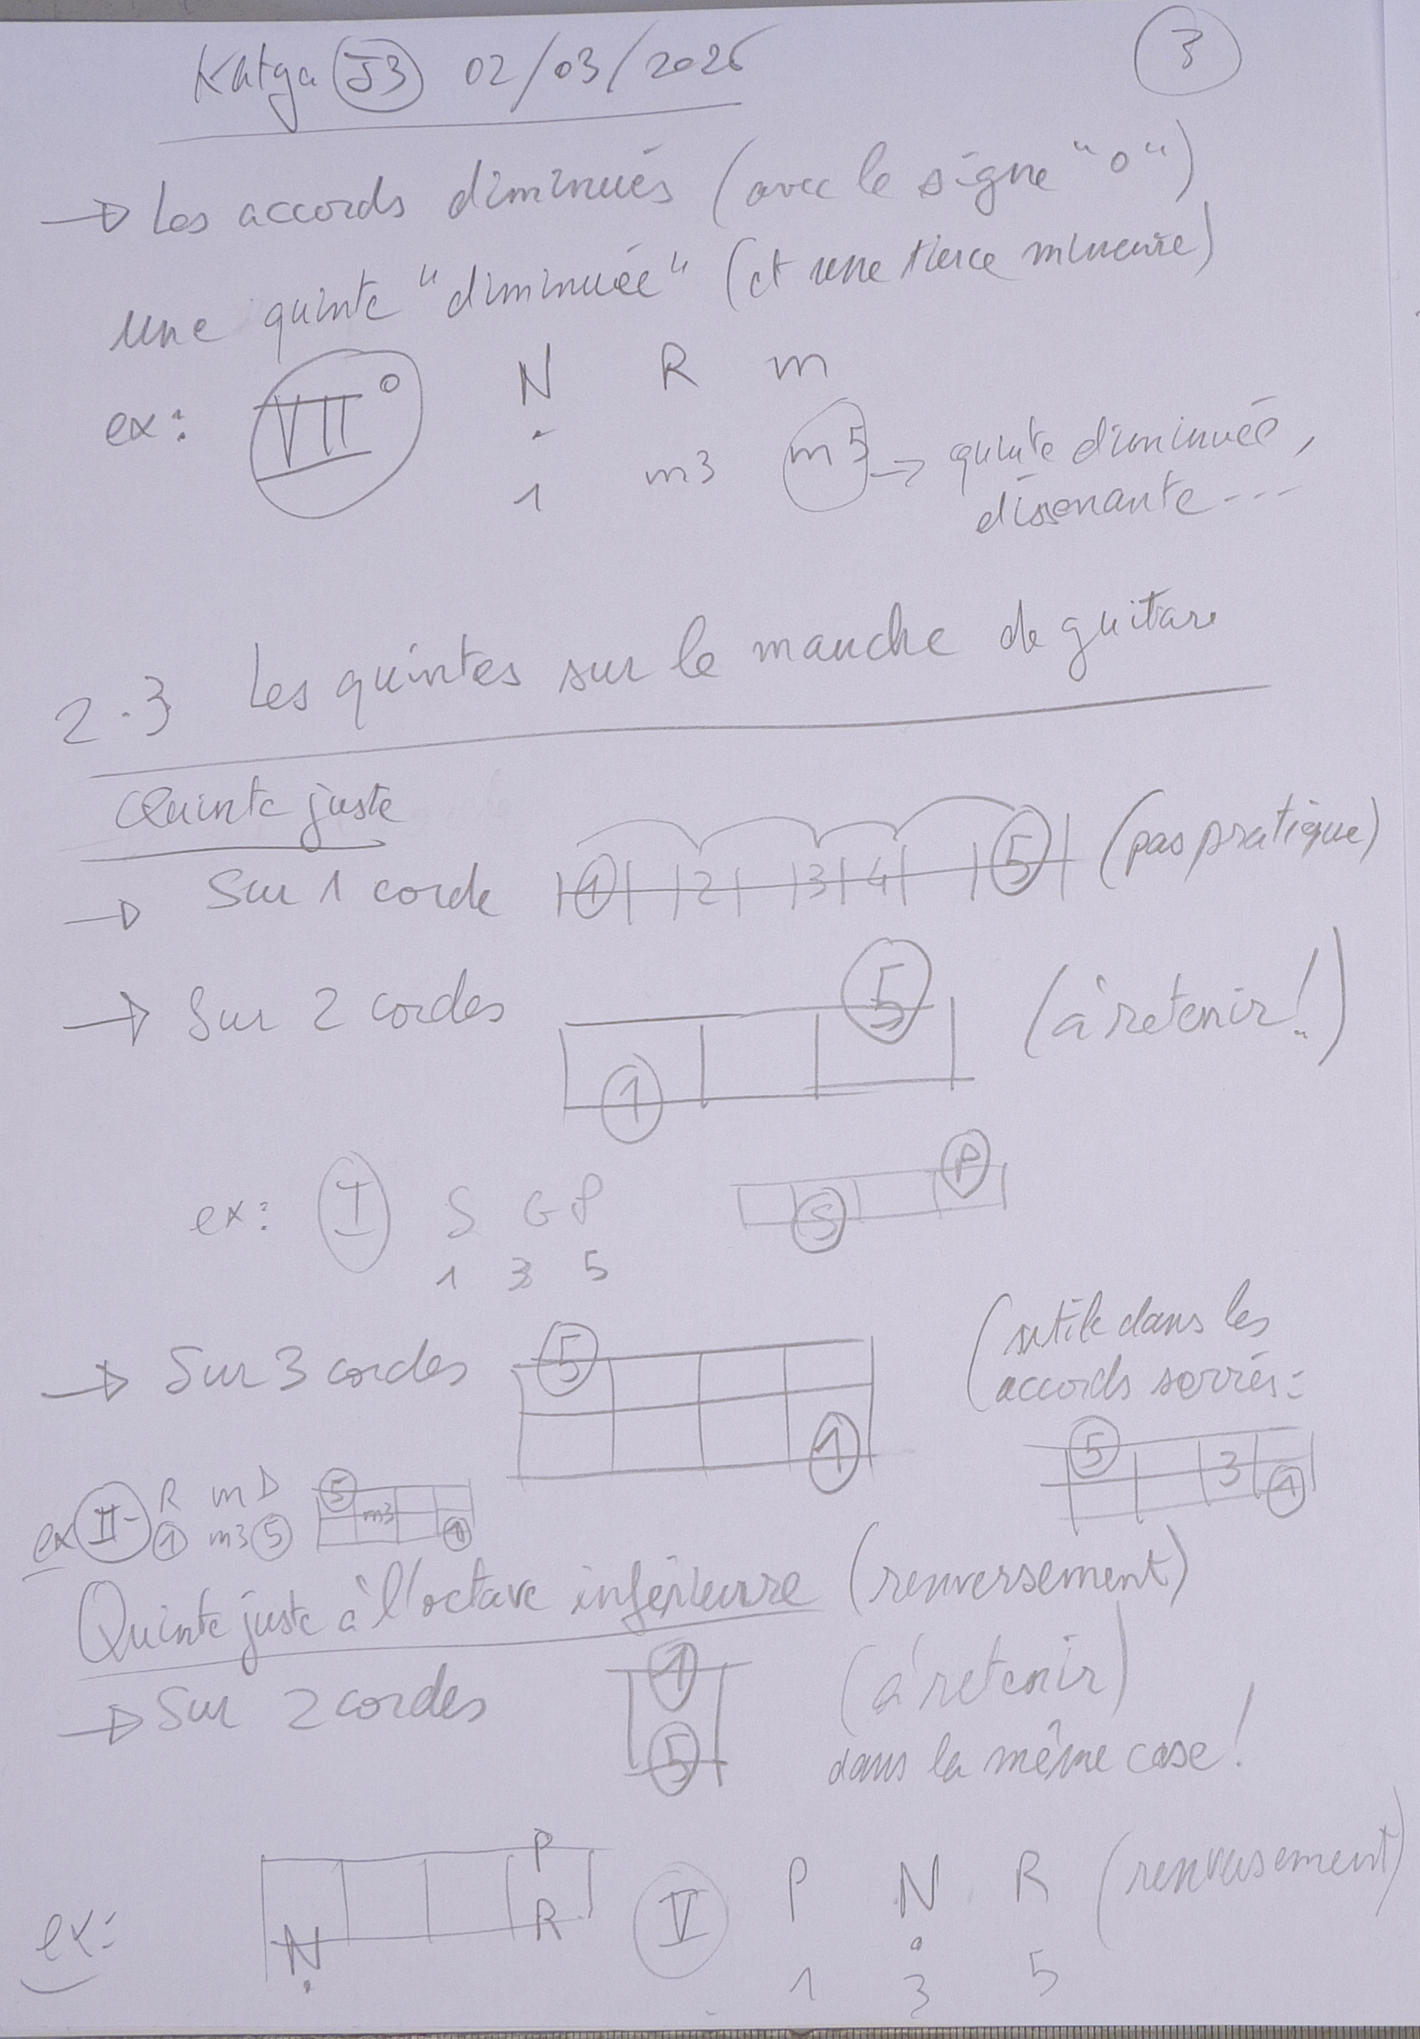 Katga J3 02/03/2026
3
→ Les accords diminués (avec le signe "o")
une quinte "diminuée" (et une tierce mineure)
ex: VII° Ṇ R m
1 m3 m5 → quinte diminuée,
dissonante ---
2.3 Les quintes sur le manche de guitare
Quinte juste
→ Sur 1 corde 1 2 3 4 5 (pas pratique)
→ Sur 2 cordes 1 5 (à retenir!)
ex: I S G P S P
1 3 5
→ Sur 3 cordes 5 1 (utile dans les
accords serrés:
5 3 1
ex II- R m D 5 m3 1
1 m3 5
Quinte juste à l'octave inférieure (renversement)
→ Sur 2 cordes 1 5 (à retenir)
dans la même case!
ex: Ṇ P R V P Ṇ R (renversement)
1 3 5